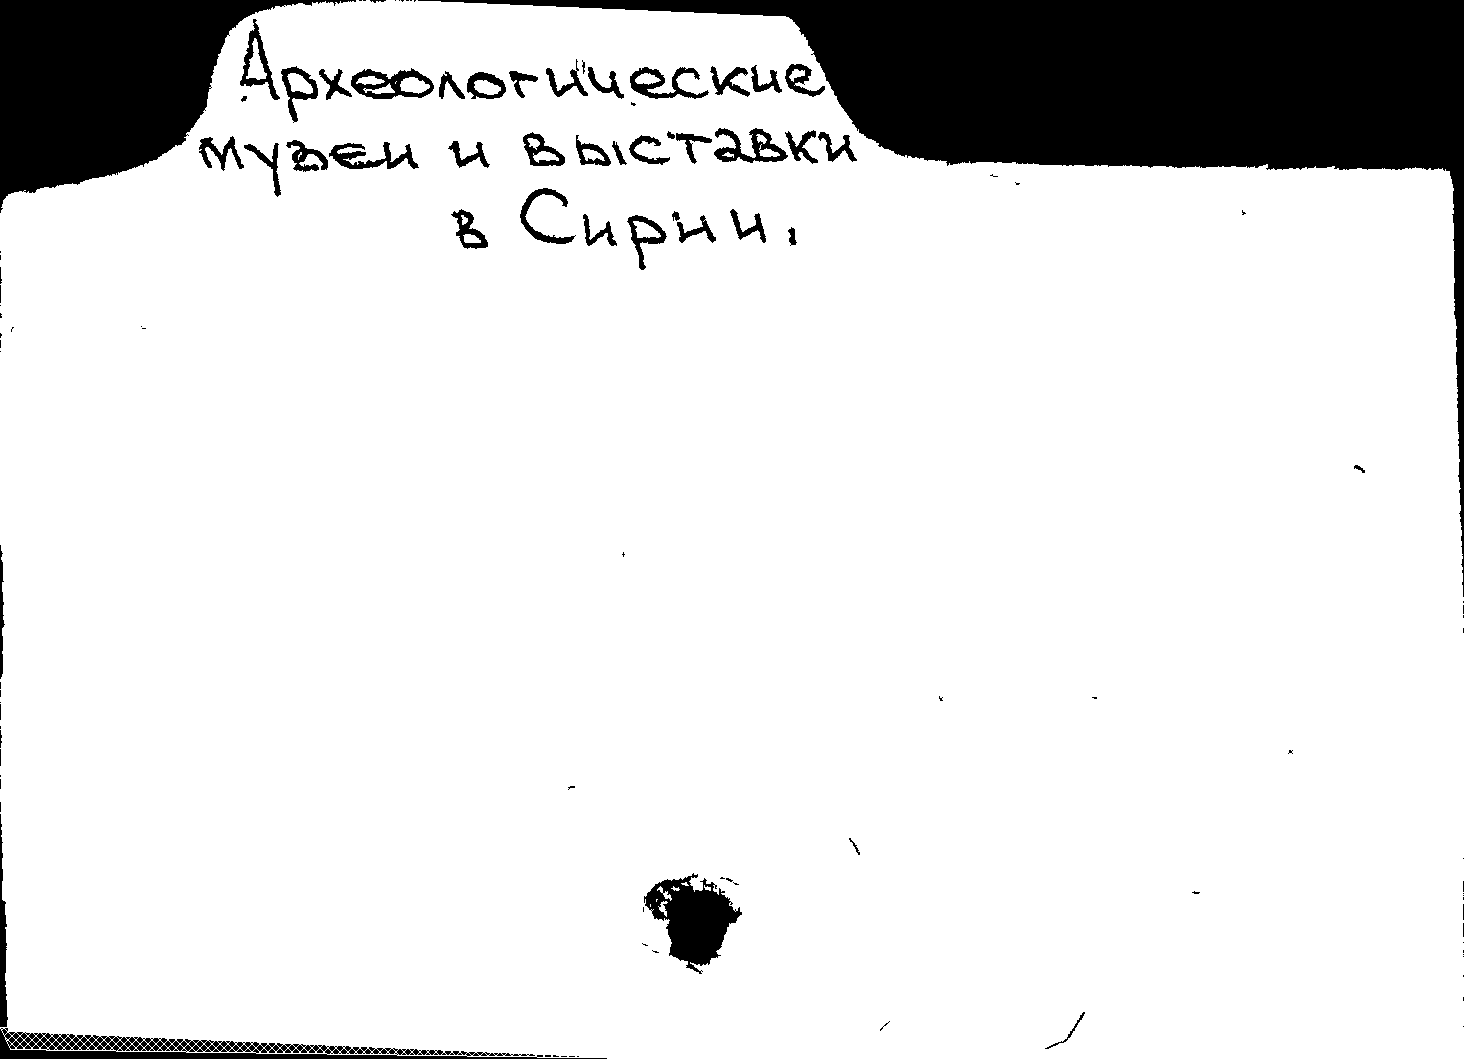 Археологические
музеи и выставки
в Сирии.